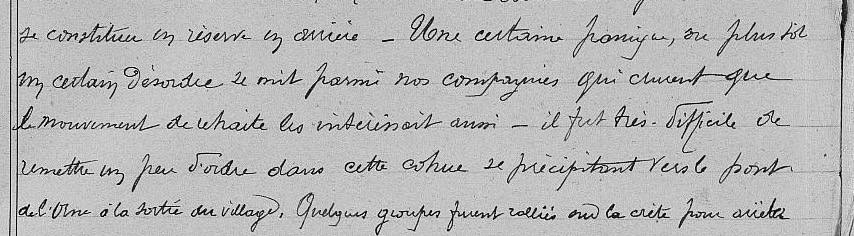 se constituer en réserve en arrière – Une certaine panique, ou plus tôt
un certain désordre se mit parmi nos compagnies qui crurent que
le mouvement de retraite les intéressait aussi – il fut très-difficile de
remettre un peu d'ordre dans cette cohue se précipitant vers le pont
de l'Orne à la sortie du village. Quelques groupes furent ralliés sur la crête pour arrêter